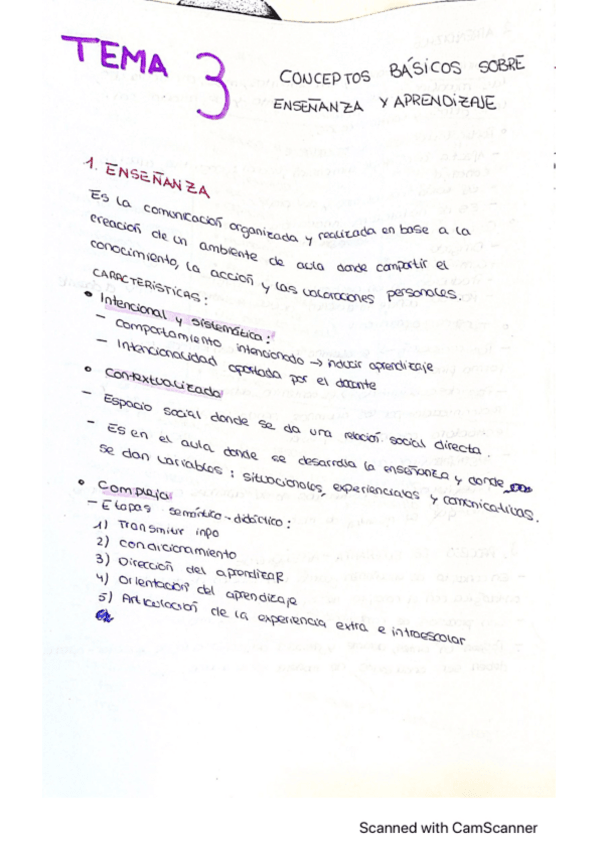 TEMA 3
CONCEPTOS BÁSICOS SOBRE
ENSEÑANZA Y APRENDIZAJE
1. ENSEÑANZA
Es la comunicación organizada y realizada en base a la
creación de un ambiente de aula donde compartir el
conocimiento, la acción y las valoraciones personales.
CARACTERÍSTICAS:
• Intencional y sistemática:
- Comportamiento intencionado → inducir aprendizaje
- Intencionalidad aportada por el docente
• Contextualizada
- Espacio social donde se da una relación social directa.
- Es en el aula donde se desarrolla la enseñanza y donde
se dan variables: situacionales, experienciales y comunicativas.
• Compleja
- Etapas semántico-didáctico:
1) Transmitir info
2) Condicionamiento
3) Dirección del aprendizaje
4) Orientación del aprendizaje
5) Articulación de la experiencia extra e intraescolar
Scanned with CamScanner